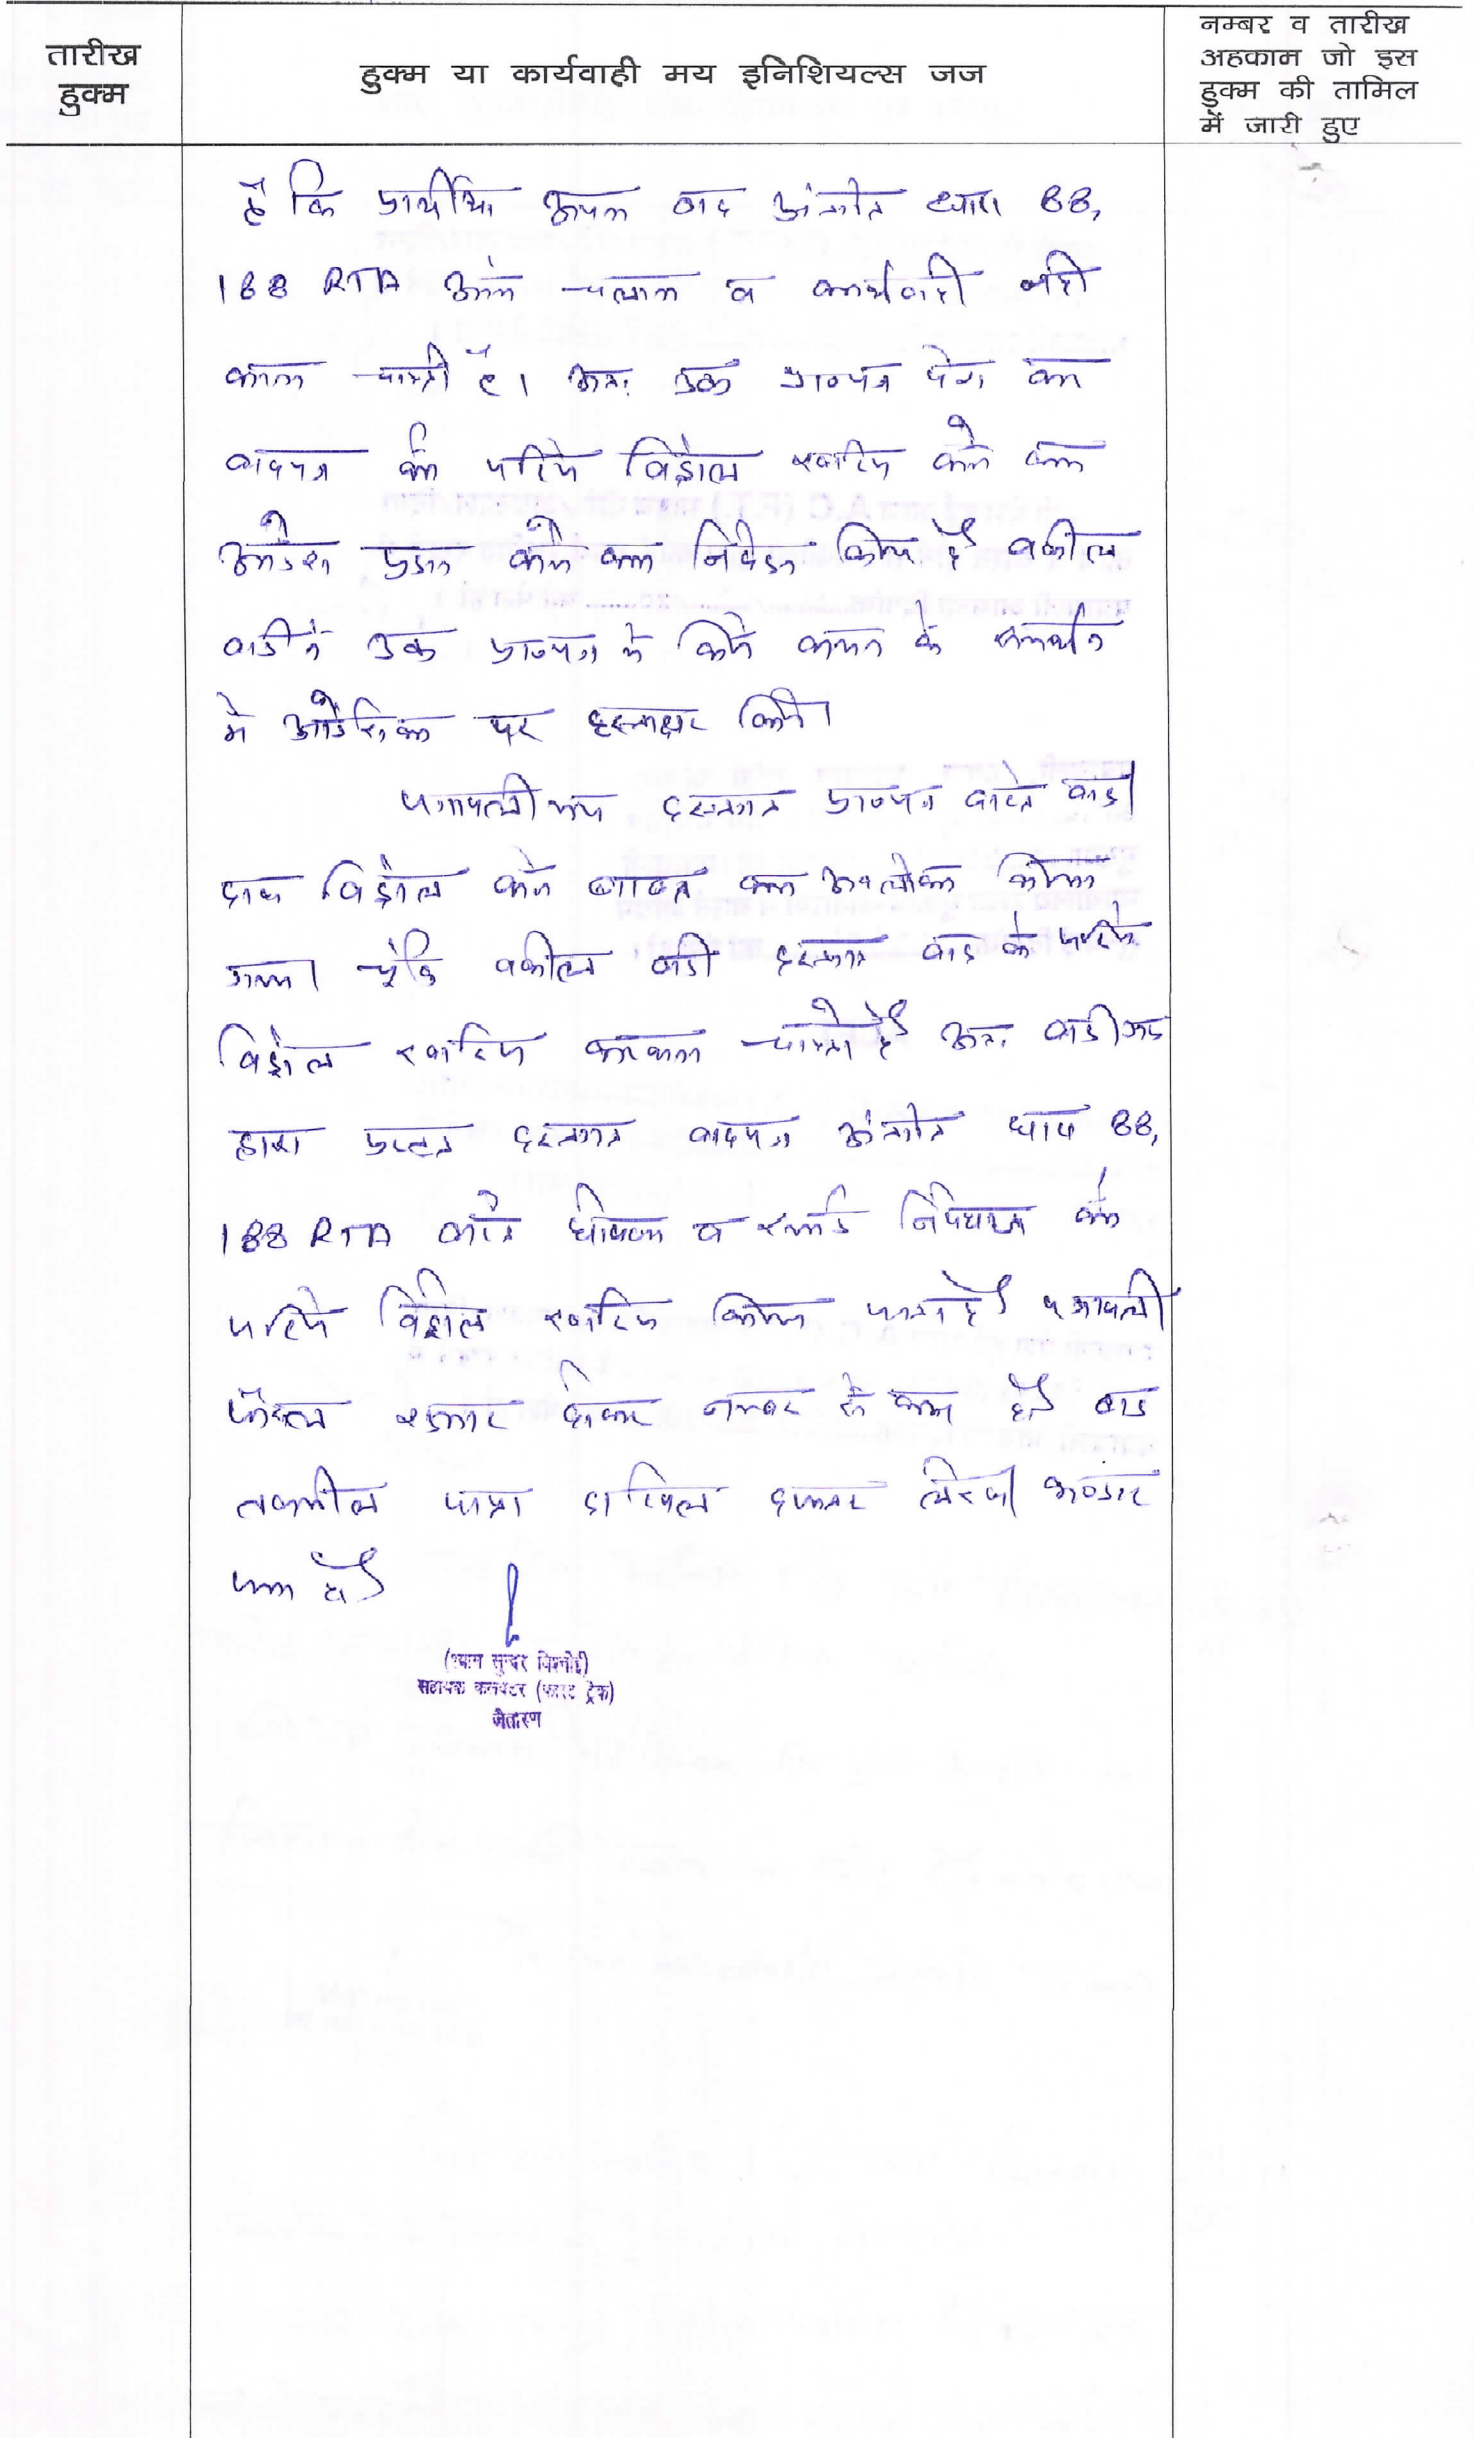 तारीख
हुक्म
हुक्म या कार्यवाही मय इनिशियल्स जज
नम्बर व तारीख
अहकाम जो इस
हुक्म की तामिल
में जारी हुए
है कि प्रार्थीया अपना वाद अंतर्गत धारा 88,
188 RTA आगे चलाना व कार्यवाही नही
करना चाहती है। अतः उक्त प्रा०पत्र पेश कर
वादपत्र को जरिये विड्रोल खारिज करने का
आदेश प्रदान करने का निवेदन किया है वकील
वादी ने उक्त प्रा०पत्र मे किये कथन के समर्थन
मे आदेशिका पर हस्ताक्षर किये।
पत्रावली मय दस्तगत प्रा०पत्र वास्ते वाद
विड्रोल करने बाबत का अवलोकन किया
गया। चूंकि वकील वादी हस्तगत वाद के जरिये
विड्रोल खारिज करवाना चाहते है अतः वादीगण
द्वारा प्रस्तुत हस्तगत वादपत्र अंतर्गत धारा 88,
188 RTA वास्ते घोषणा व स्थाई निषेधाज्ञा को
जरिये विड्रोल खारिज किया जाता है पत्रावली
फैसल शुमार होकर नम्बर से कम हो बाद
तकमील जाब्ता दाखिल दफ्तर
(श्याम सुन्दर विश्नोई)
सहायक कलक्टर (फास्ट ट्रेक)
जैतारण